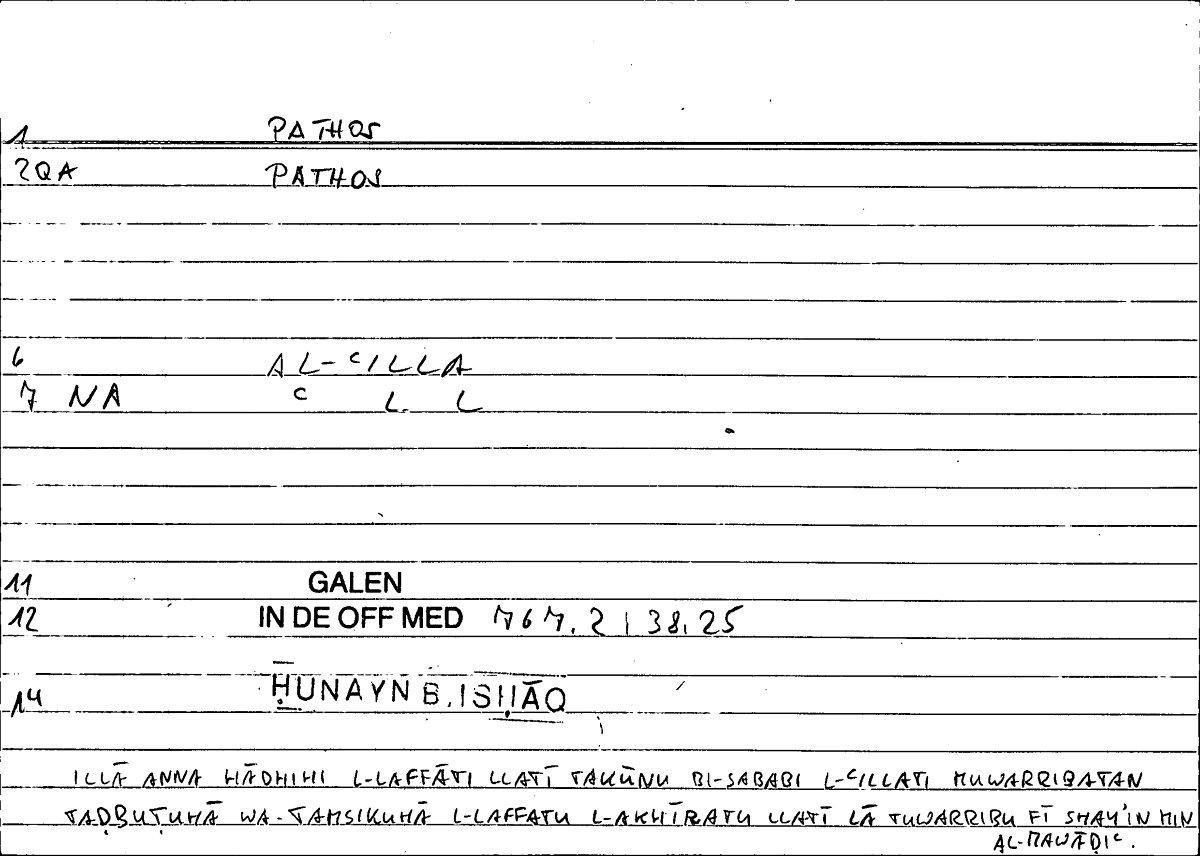 1 PATHOS
2QA PATHOS
6 AL-ʿILLA
7 NA ʿ L L
11 GALEN
12 IN DE OFF MED 767.2 | 38.25
14 ḤUNAYN B. ISḤĀQ
ILLĀ ANNA HĀDHIHI L-LAFFĀTI LLATĪ TAKŪNU BI-SABABI L-ʿILLATI MUWARRIBATAN
TAḌBUṬUHĀ WA-TAMSIKUHĀ L-LAFFATU L-AKHĪRATU LLATĪ LĀ TUWARRIBU FĪ SHAY'IN MIN
AL-MAWĀḌIʿ.